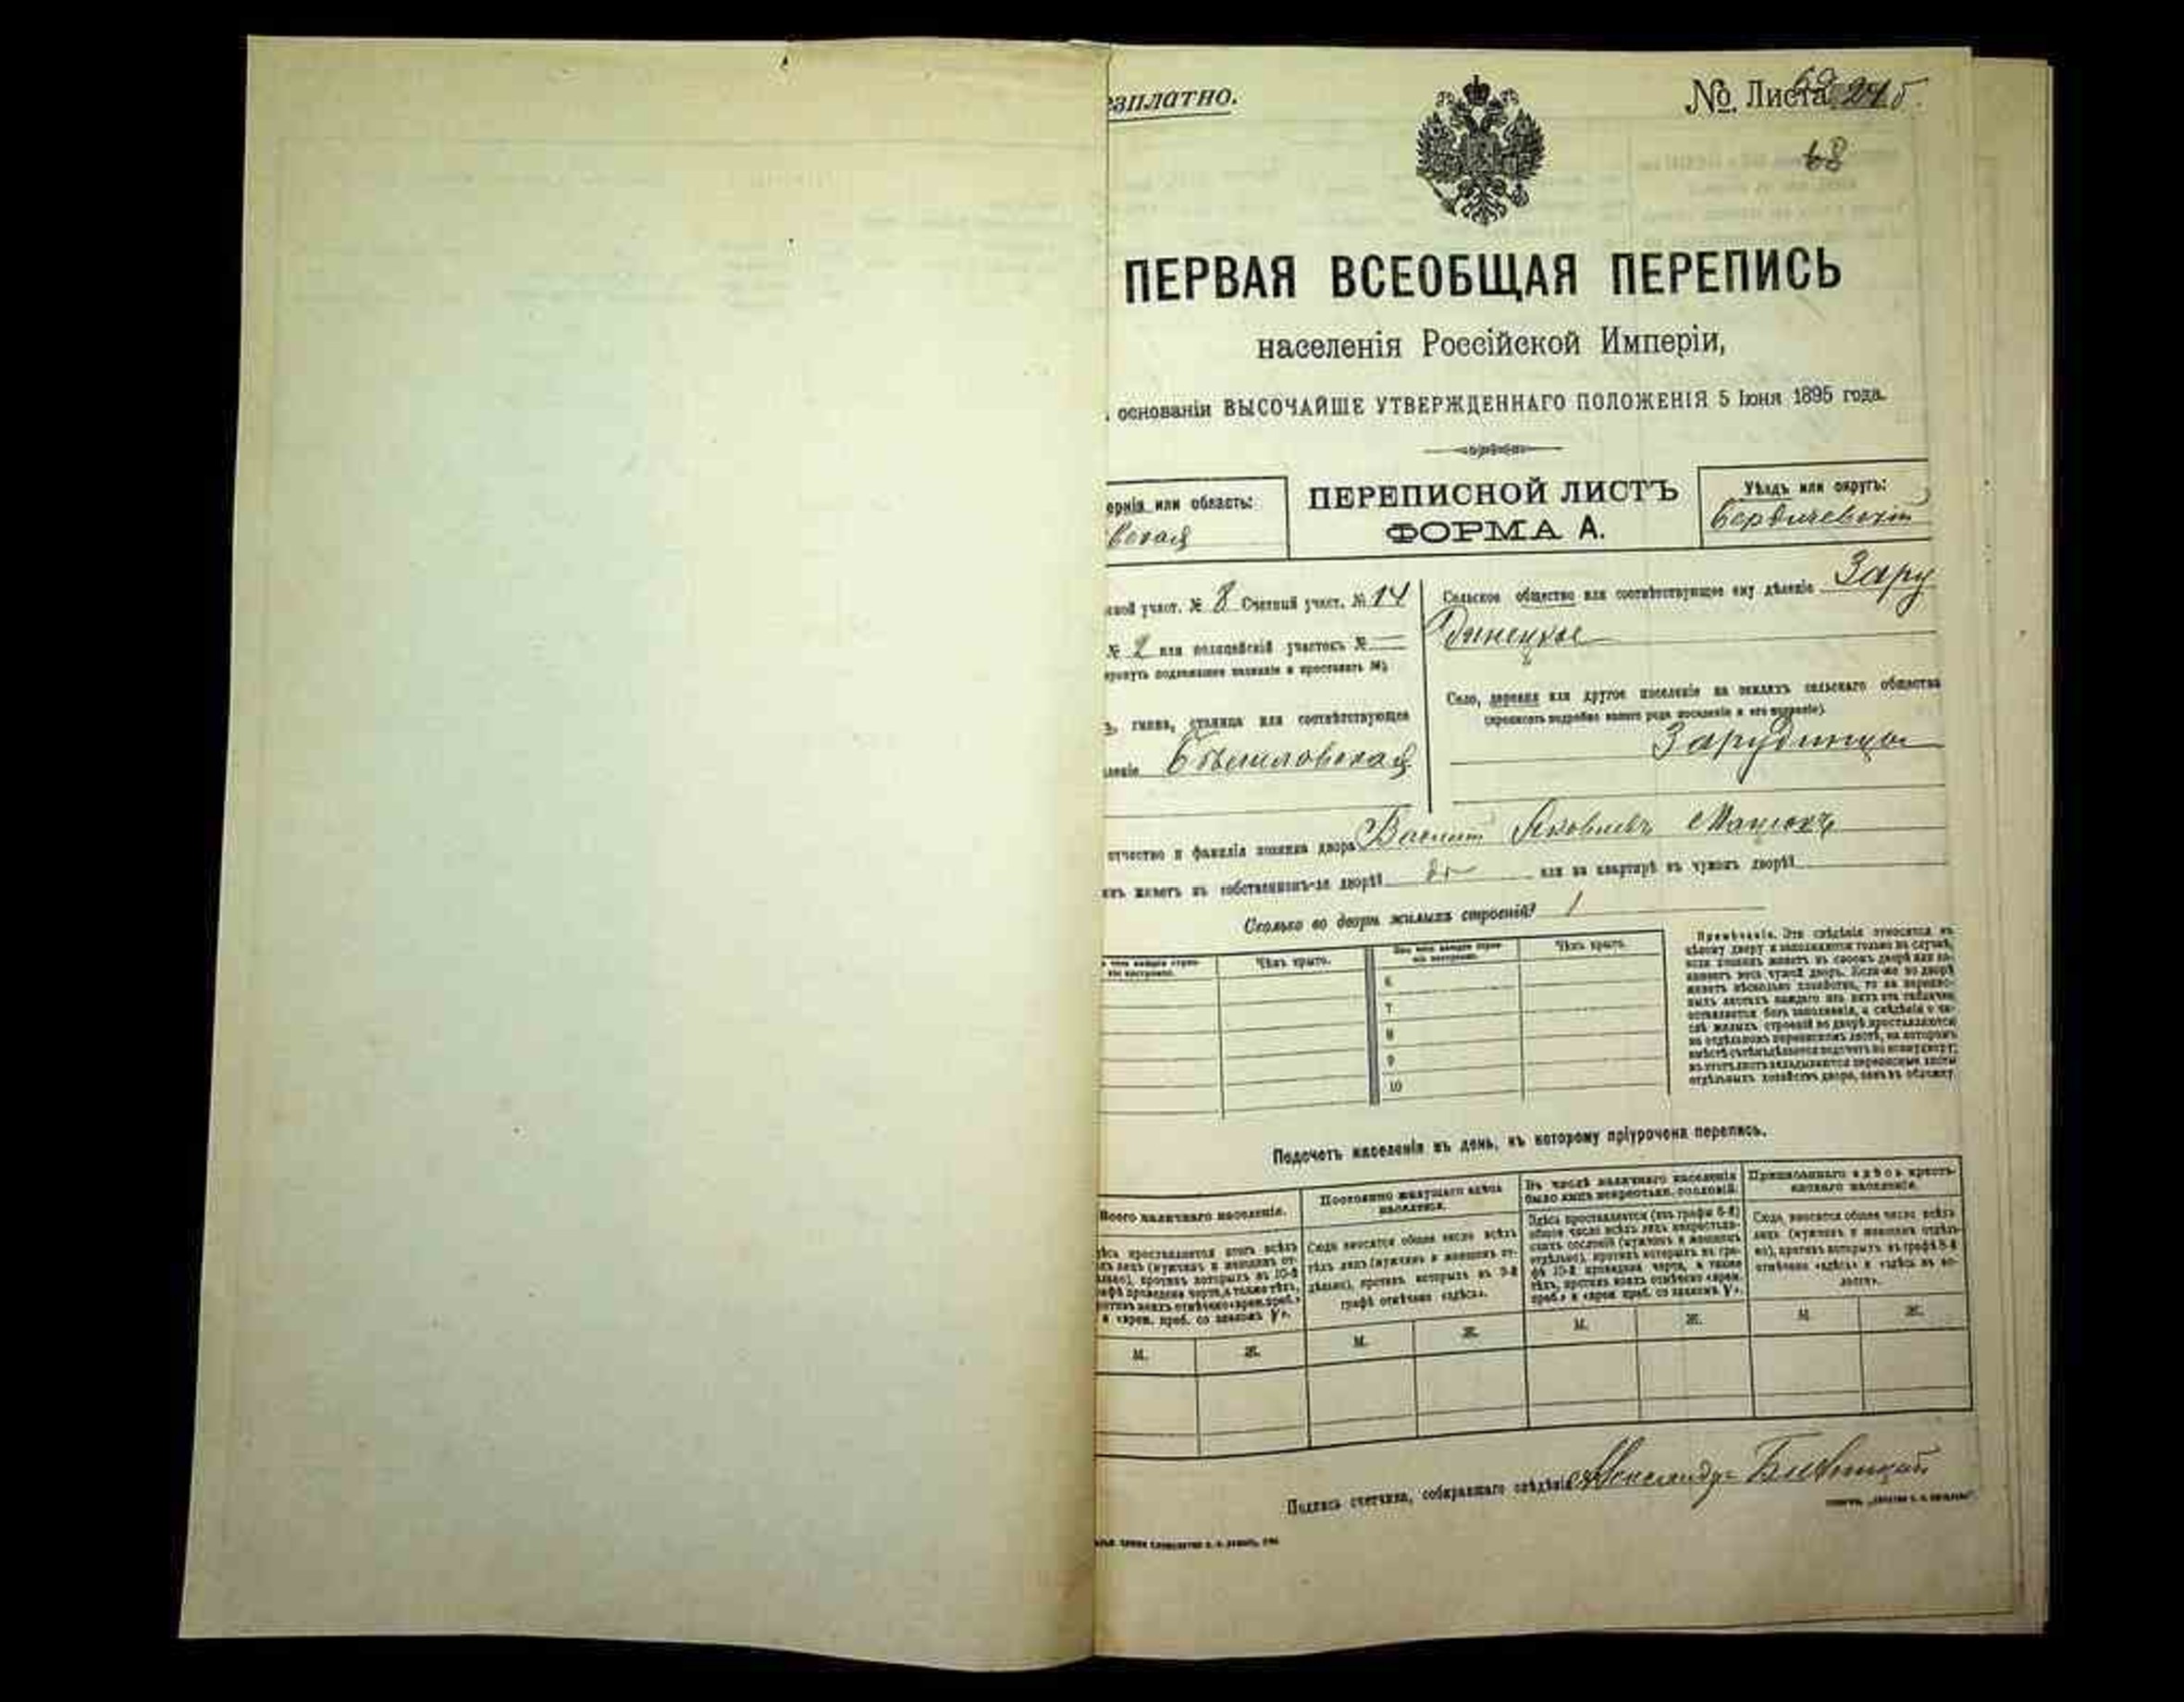 езплатно.
№ Листа
68
ПЕРВАЯ ВСЕОБЩАЯ ПЕРЕПИСЬ
населенія Россійской Имперіи,
основаніи ВЫСОЧАЙШЕ УТВЕРЖДЕННАГО ПОЛОЖЕНІЯ 5 Іюня 1895 года.
ернія или область:
вская
ПЕРЕПИСНОЙ ЛИСТЪ
ФОРМА А.
Уѣздъ или округъ:
Бердичевскій
участ. № 8 Счетный участ. № 14
№ 2 или полицейскій участокъ №
подлежащее названіе и проставить №)
гмина, станица или соотвѣтствующее
леніе
Сельское общество или соотвѣтствующее ему дѣленіе Зару
динецкое
Село, деревня или другое поселеніе на земляхъ сельскаго общества
(прописать подробно какого рода поселеніе и его названіе)
Зарудинцы
отчество и фамилія хозяина двора Василій Яковлевъ
живетъ въ собственномъ-ли дворѣ? да или на квартирѣ въ чужомъ дворѣ?
Сколько во дворѣ жилыхъ строеній? 1
Чѣмъ крыто.
Изъ чего каждое строе-
ніе построено.
Чѣмъ крыто.
6
7
8
9
10
Примѣчаніе. Эти свѣдѣнія относятся къ
цѣлому двору и заполняются только въ случаѣ,
если хозяинъ живетъ въ своемъ дворѣ или за-
нимаетъ весь чужой дворъ. Если-же во дворѣ
живетъ нѣсколько хозяйствъ, то на перепис-
ныхъ листахъ каждаго изъ нихъ эта табличка
оставляется безъ заполненія, а свѣдѣнія о чи-
слѣ жилыхъ строеній во дворѣ проставляются
на отдѣльномъ переписномъ листѣ, на которомъ
отдѣльныхъ хозяйствъ двора, какъ въ обложку.
Подсчетъ населенія въ день, къ которому пріурочена перепись.
Всего наличнаго населенія.
Постоянно живущаго здѣсь
населенія.
Въ числѣ наличнаго населенія
было лицъ некрестьян. сословій.
Приписаннаго здѣсь кресть-
янскаго населенія.
проставляется итогъ всѣхъ
лицъ (мужчинъ и женщинъ от-
дѣльно), противъ которыхъ въ 10-й
графѣ проведена черта, а также тѣхъ,
противъ коихъ отмѣчено «врем. преб.»
и «врем. преб. со знакомъ V».
Сюда вносится общее число всѣхъ
тѣхъ лицъ (мужчинъ и женщинъ от-
дѣльно), противъ которыхъ въ 9-й
графѣ отмѣчено «здѣсь».
Здѣсь проставляется (изъ графы 6-й)
общее число всѣхъ лицъ некрестьян-
скихъ сословій (мужчинъ и женщинъ
отдѣльно), противъ которыхъ въ гра-
фѣ 10-й проведена черта, а также
тѣхъ, противъ коихъ отмѣчено «врем.
преб.» и «врем. преб. со знакомъ V».
Сюда вносится общее число всѣхъ
лицъ (мужчинъ и женщинъ отдѣль-
но), противъ которыхъ въ графѣ 8-й
отмѣчено «здѣсь» и «здѣсь въ во-
лости».
М.
Ж.
М.
Ж.
М.
Ж.
М.
Ж.
Подпись счетчика, собиравшаго свѣдѣнія Александръ